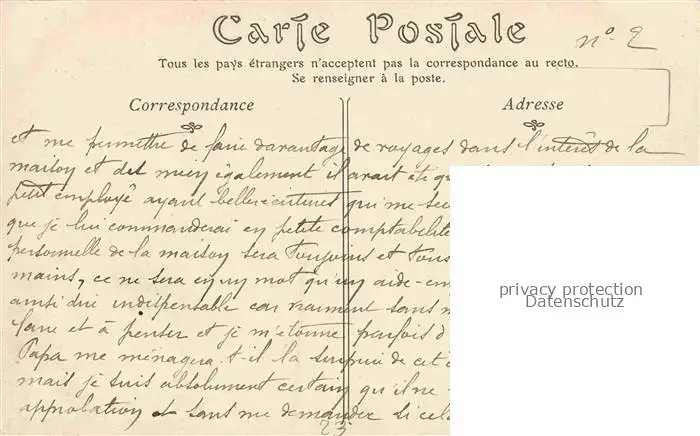 Carte Postale
nº. 2
Tous les pays étrangers n'acceptent pas la correspondance au recto.
Se renseigner à la poste.
Correspondance
Adresse
et me permettre de faire davantage de voyages dans l'intérêt de la
maison et des miens également il avait été
petit employé ayant belles écritures qui me
que je lui commanderai en petite comptabilité
personnelle de la maison sera toujours et tous
mains, ce ne sera en un mot qu'un aide
ainsi dire indispensable car vraiment sans
faire et à penser et je m'étonne parfois
Papa me ménagera-t-il la surprise de cet
mais je suis absolument certain qu'il ne
approbation et sans me demander si cela
23
privacy protection
Datenschutz